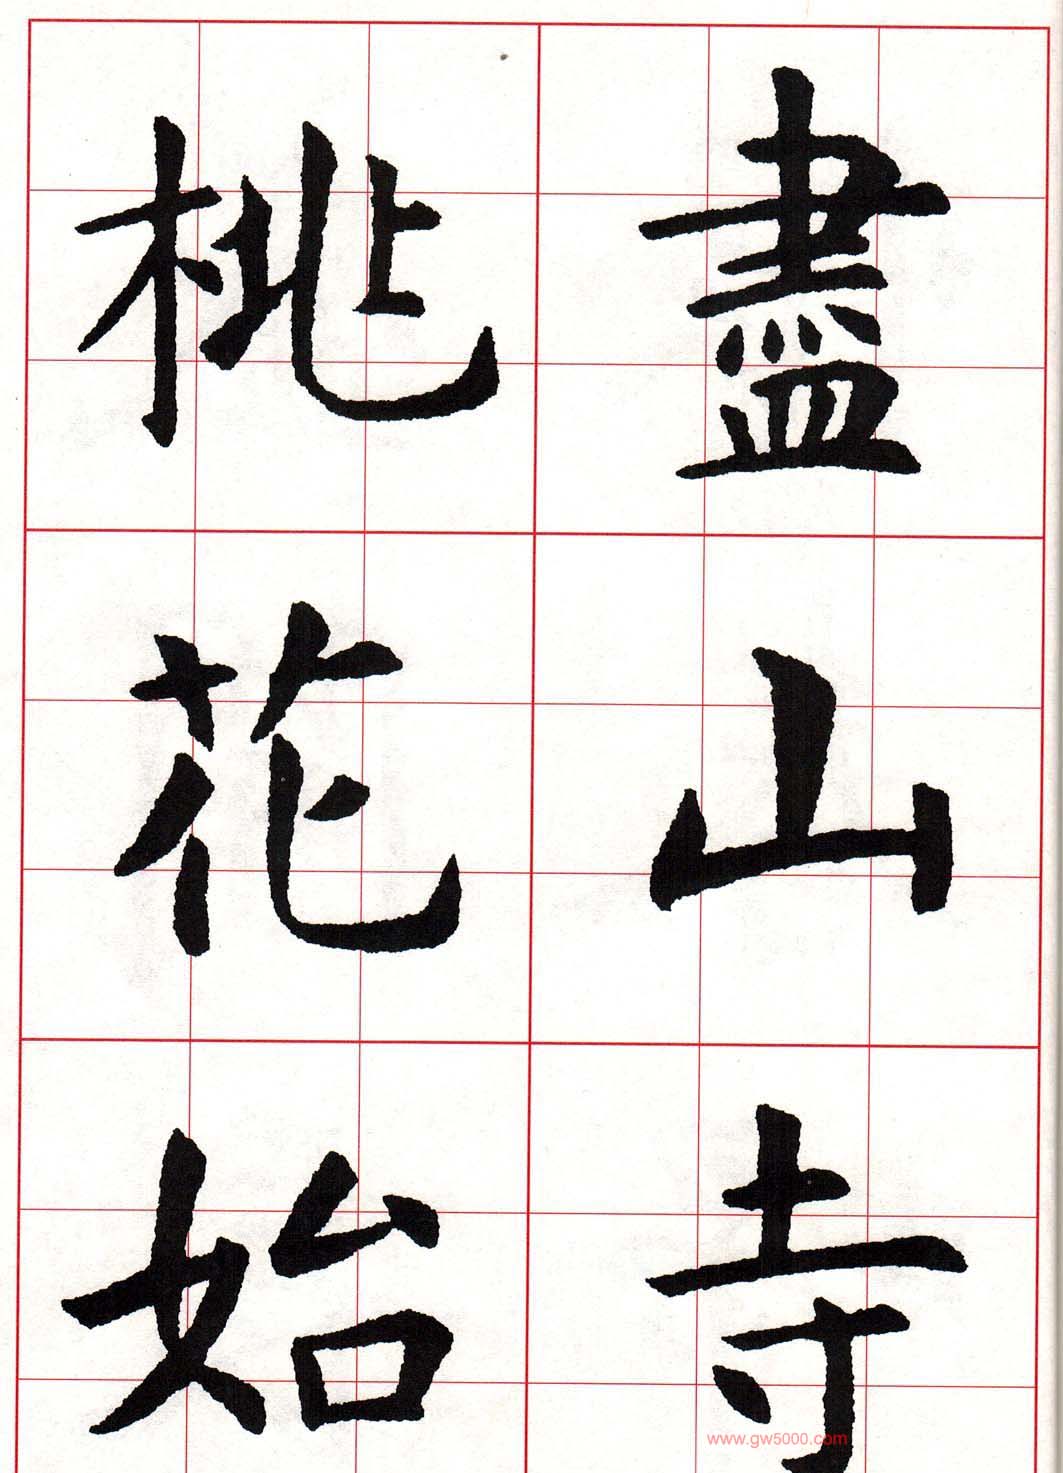 盡山寺
桃花始
www.gw5000.com